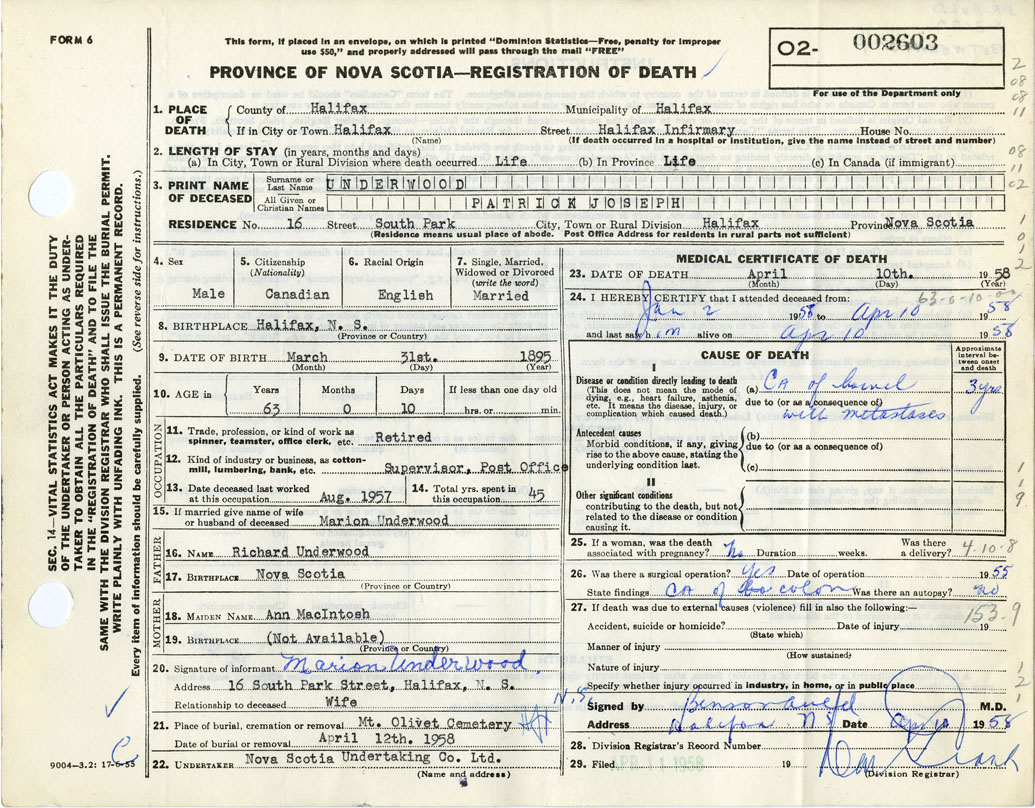 FORM 6
This form, if placed in an envelope, on which is printed "Dominion Statistics—Free, penalty for improper
use $50," and properly addressed will pass through the mail "FREE"
PROVINCE OF NOVA SCOTIA—REGISTRATION OF DEATH
O2- 002603
For use of the Department only
SEC. 14—VITAL STATISTICS ACT MAKES IT THE DUTY
OF THE UNDERTAKER OR PERSON ACTING AS UNDER-
TAKER TO OBTAIN ALL THE PARTICULARS REQUIRED
IN THE "REGISTRATION OF DEATH" AND TO FILE THE
SAME WITH THE DIVISION REGISTRAR WHO SHALL ISSUE THE BURIAL PERMIT.
WRITE PLAINLY WITH UNFADING INK. THIS IS A PERMANENT RECORD.
Every item of information should be carefully supplied. (See reverse side for instructions.)
1. PLACE OF DEATH
County of Halifax Municipality of Halifax
If in City or Town Halifax Street Halifax Infirmary House No.
(Name) (If death occurred in a hospital or institution, give the name instead of street and number)
2. LENGTH OF STAY (in years, months and days)
(a) In City, Town or Rural Division where death occurred Life (b) In Province Life (c) In Canada (if immigrant)
3. PRINT NAME OF DECEASED
Surname or Last Name UNDERWOOD
All Given or Christian Names PATRICK JOSEPH
RESIDENCE No. 16 Street South Park City, Town or Rural Division Halifax Province Nova Scotia
(Residence means usual place of abode. Post Office Address for residents in rural parts not sufficient)
4. Sex
Male
5. Citizenship
(Nationality)
Canadian
6. Racial Origin
English
7. Single, Married,
Widowed or Divorced
(write the word)
Married
8. BIRTHPLACE Halifax, N. S.
(Province or Country)
9. DATE OF BIRTH March 31st. 1895
(Month) (Day) (Year)
10. AGE in
Years Months Days If less than one day old
63 0 10 hrs. or min.
OCCUPATION
11. Trade, profession, or kind of work as
spinner, teamster, office clerk, etc. Retired
12. Kind of industry or business, as cotton-
mill, lumbering, bank, etc. Supervisor, Post Office
13. Date deceased last worked
at this occupation Aug. 1957
14. Total yrs. spent in
this occupation 45
15. If married give name of wife
or husband of deceased Marion Underwood
FATHER
16. NAME Richard Underwood
17. BIRTHPLACE Nova Scotia
(Province or Country)
MOTHER
18. MAIDEN NAME Ann MacIntosh
19. BIRTHPLACE (Not Available)
(Province or Country)
20. Signature of informant Marion Underwood
Address 16 South Park Street, Halifax, N. S.
Relationship to deceased Wife
21. Place of burial, cremation or removal Mt. Olivet Cemetery Hfx N.S.
Date of burial or removal April 12th. 1958
22. UNDERTAKER Nova Scotia Undertaking Co. Ltd.
(Name and address)
9004-3.2: 17-6-55
MEDICAL CERTIFICATE OF DEATH
23. DATE OF DEATH April 10th. 1958
(Month) (Day) (Year)
63-0-10-
24. I HEREBY CERTIFY that I attended deceased from:
Jan 2 1958 to Apr 10 1958
and last saw him alive on Apr 10 1958
CAUSE OF DEATH
Approximate
interval be-
tween onset
and death
I
Disease or condition directly leading to death
(This does not mean the mode of
dying, e.g., heart failure, asthenia,
etc. It means the disease, injury, or
complication which caused death.)
(a) CA of bowel 3 yrs
due to (or as a consequence of)
with metastases
Antecedent causes
Morbid conditions, if any, giving
rise to the above cause, stating the
underlying condition last.
(b)
due to (or as a consequence of)
(c)
II
Other significant conditions
contributing to the death, but not
related to the disease or condition
causing it.
25. If a woman, was the death
associated with pregnancy? No Duration weeks. Was there
a delivery? 4-10-8
26. Was there a surgical operation? Yes Date of operation 1955
State findings CA of the colon Was there an autopsy? No
27. If death was due to external causes (violence) fill in also the following:— 153.9
Accident, suicide or homicide? Date of injury 19
(State which)
Manner of injury
(How sustained)
Nature of injury
Specify whether injury occurred in industry, in home, or in public place
Signed by M.D.
Address Halifax NS Date Apr 10 1958
28. Division Registrar's Record Number
29. Filed APR 11 1958 19
(Division Registrar)
2
08
08
11
08
11
02
1
9
2
1
1
9
1
2
1